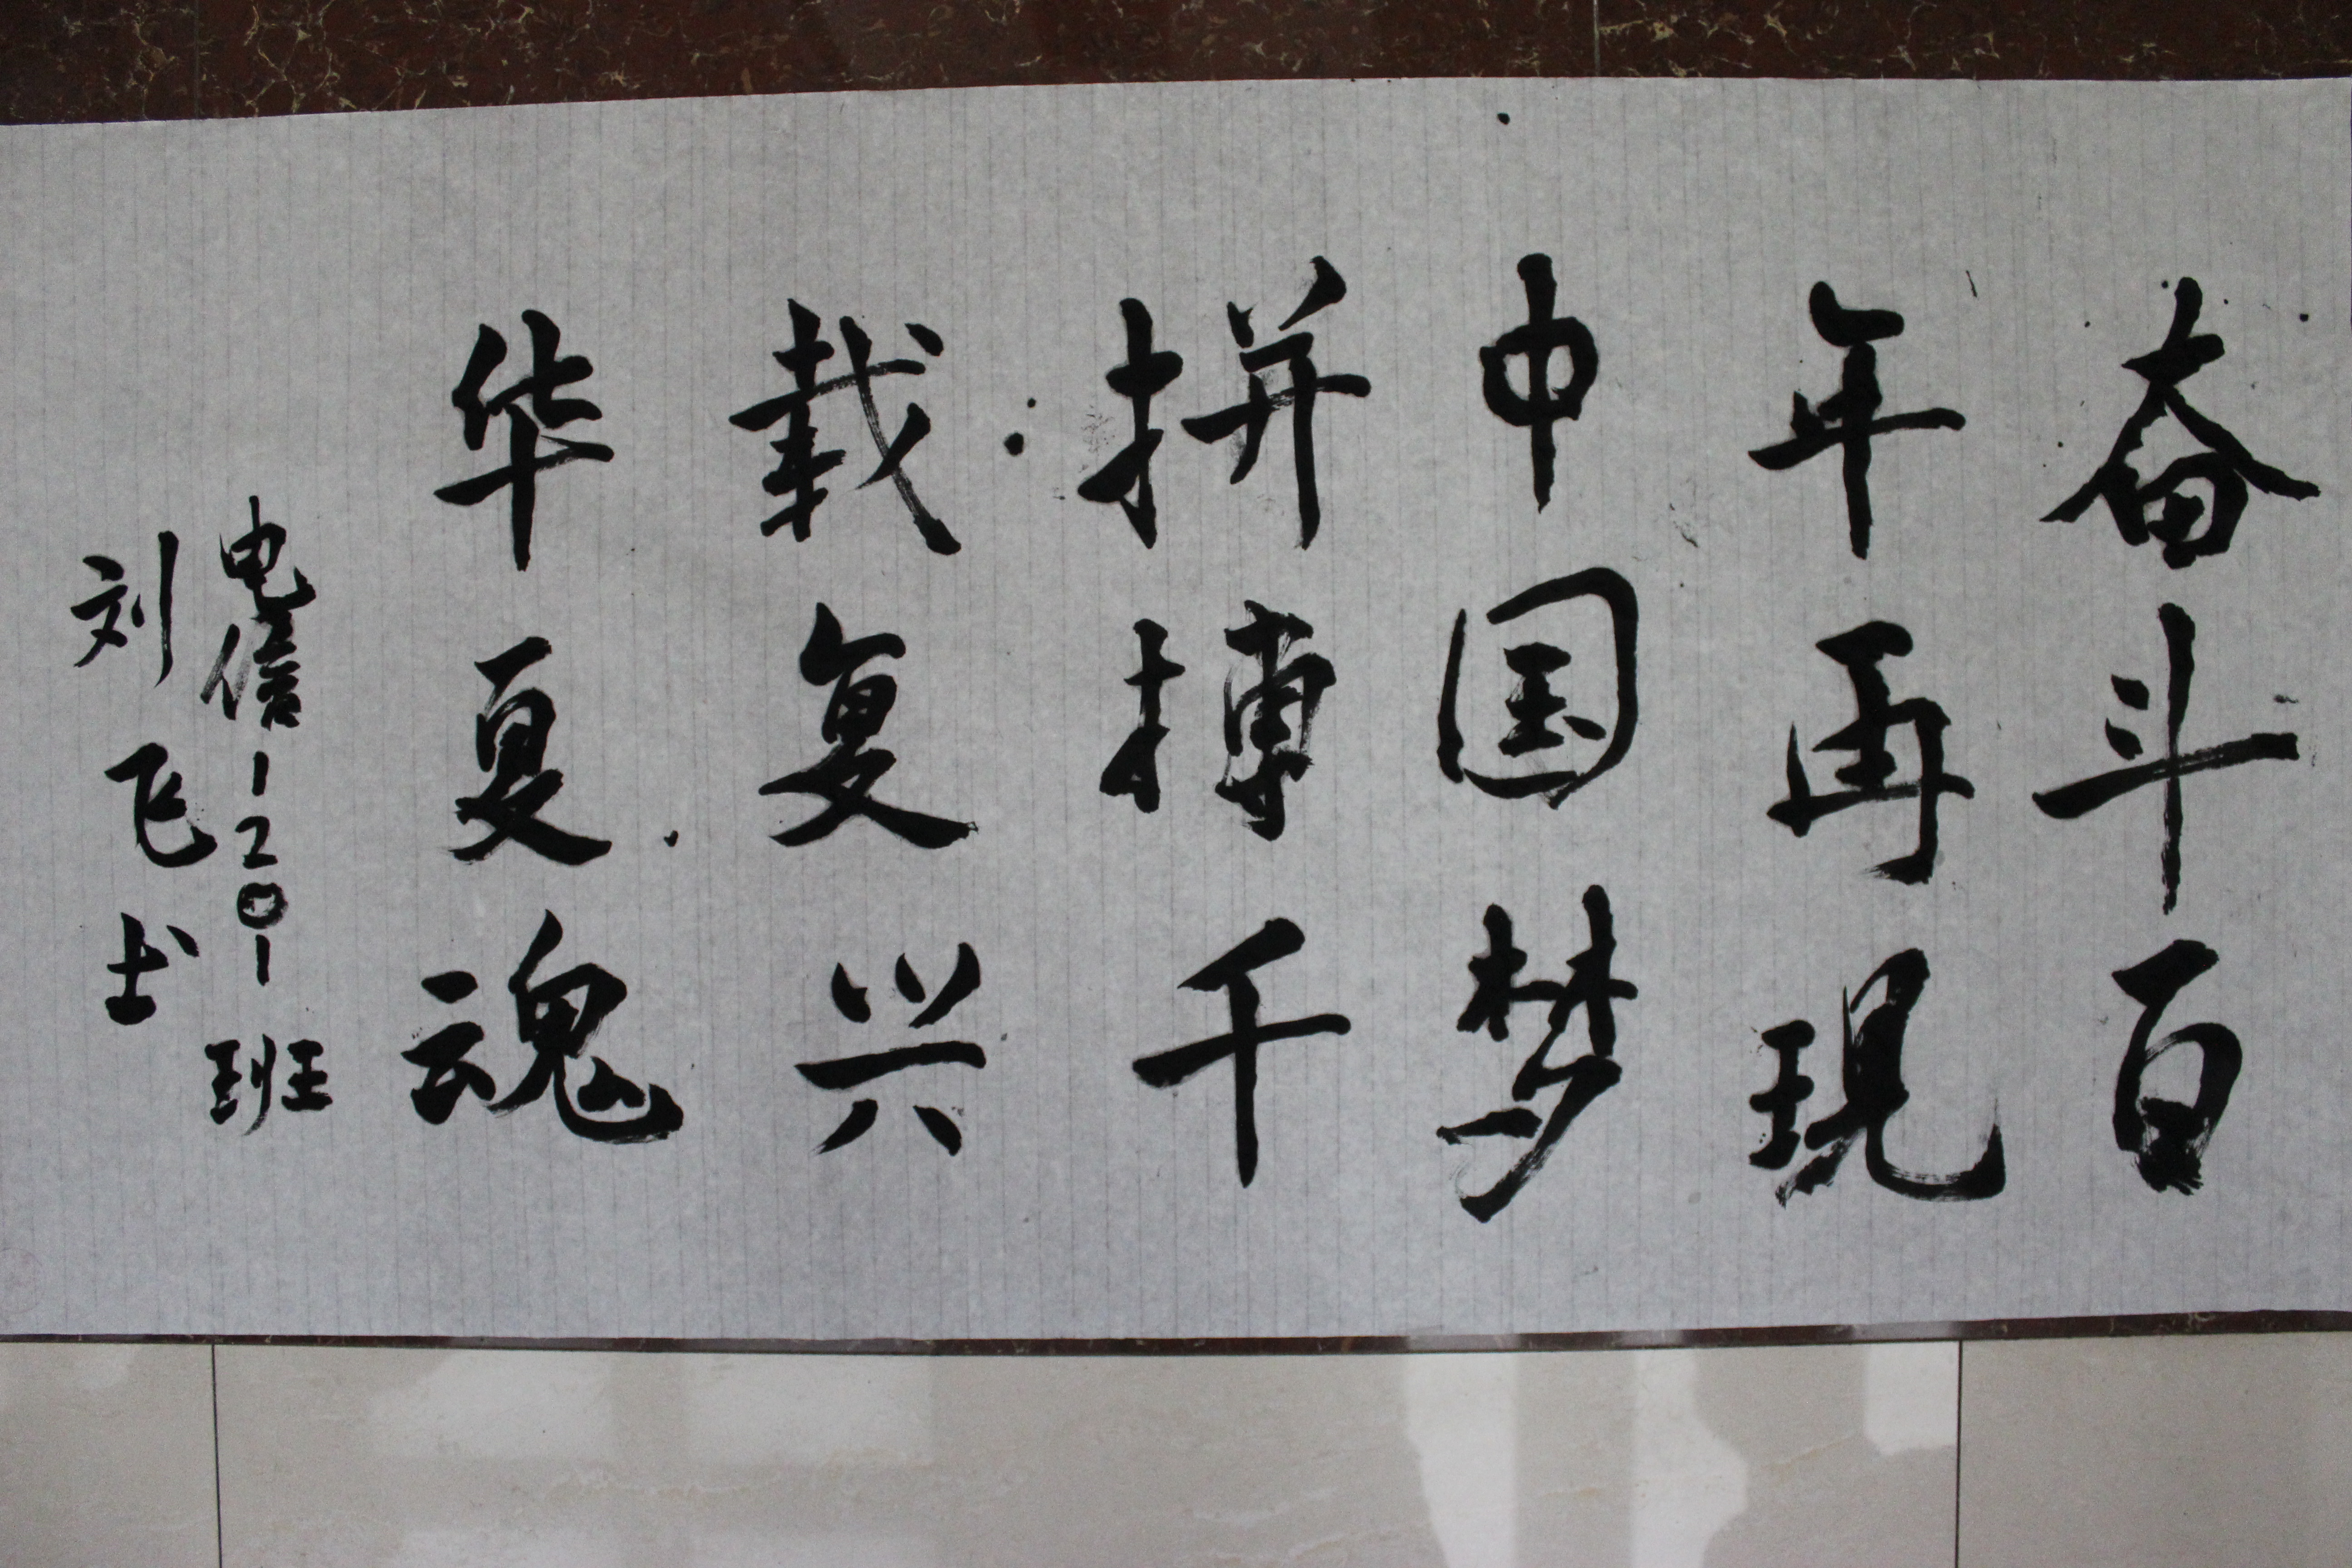 奋斗百
年再现
中国梦
拼搏千
载复兴
华夏魂
电信1201班
刘飞